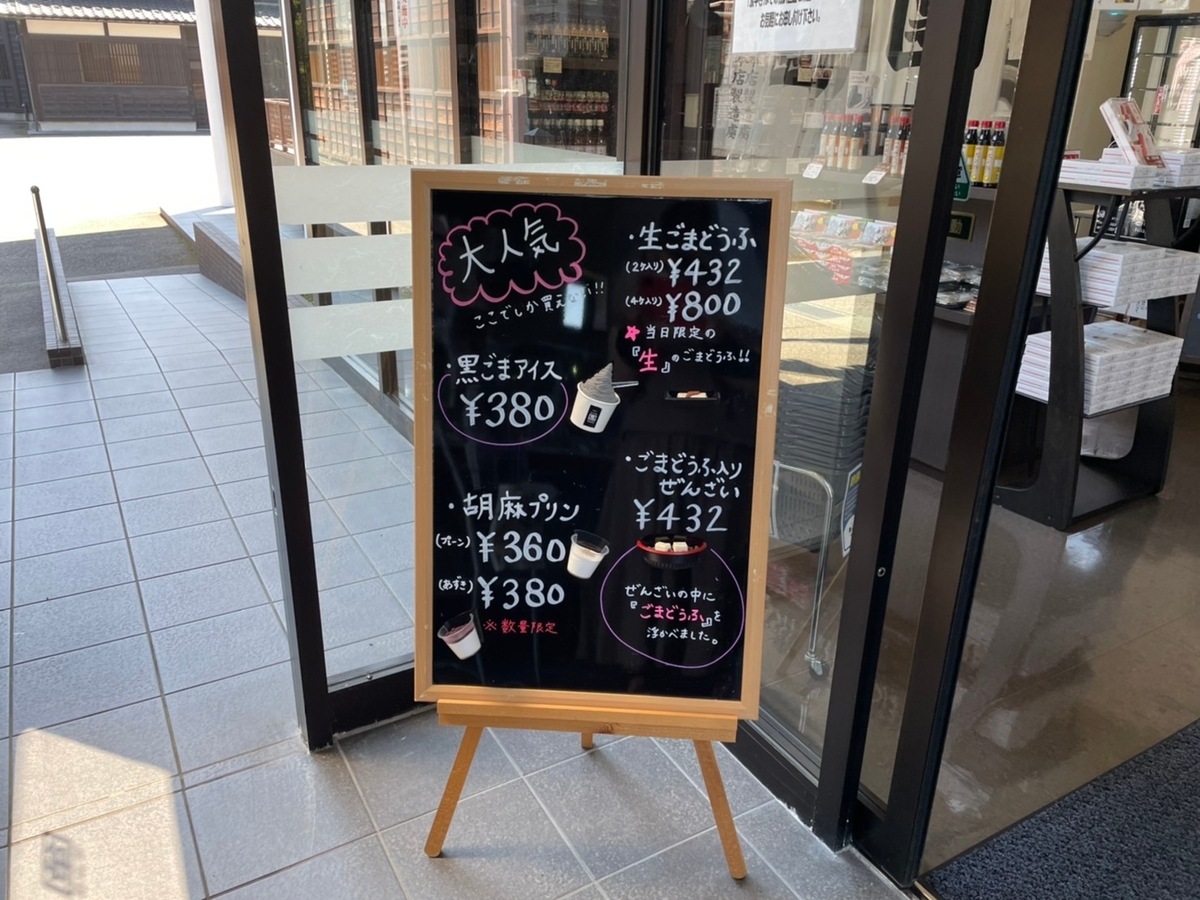 大人気
ここでしか買えない!!
・黒ごまアイス
¥380
・胡麻プリン
(プレーン) ¥360
(あずき) ¥380
※数量限定
・生ごまどうふ
(2ケ入り) ¥432
(4ケ入り) ¥800
当日限定の
『生』のごまどうふ!!
・ごまどうふ入り
ぜんざい
¥432
ぜんざいの中に
『ごまどうふ』を
浮かべました。
お気軽にお申し付け下さい。